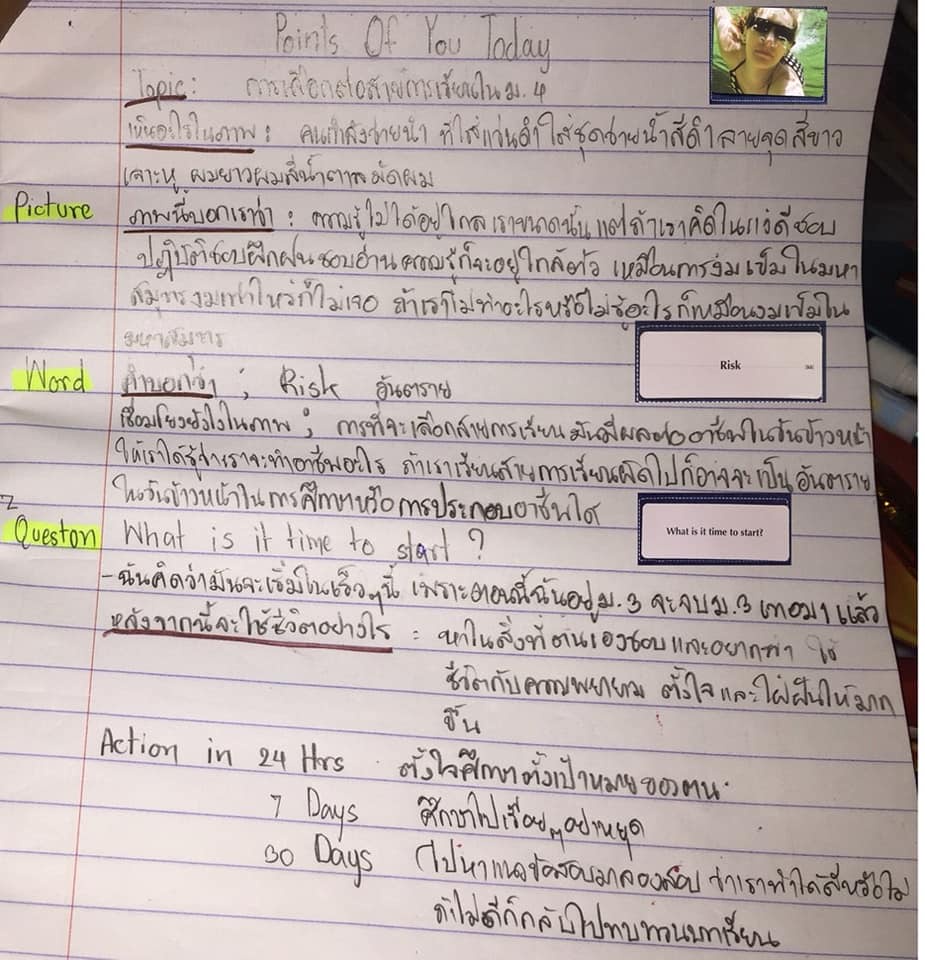 Points Of You Today
Topic: การเลือกต่อสายการเรียนใน ม.4
เห็นอะไรในภาพ : คนกำลังว่ายน้ำ ที่ใส่แว่นดำ ใส่ชุดว่ายน้ำสีดำ ลายจุดสีขาว
เจาะหู ผมยาวผมสีน้ำตาล มัดผม
Picture ภาพนี้บอกเราว่า : ความรู้ไม่ได้อยู่ไกลเราขนาดนั้น แต่ถ้าเราคิดในแง่ดีชอบ
ปฏิบัติชอบฝึกฝน ชอบอ่าน ความรู้ก็จะอยู่ใกล้ตัว เหมือนการงมเข็มในมหา
สมุทร งมเท่าไหร่ก็ไม่เจอ ถ้าเราไม่ทำอะไรหรือไม่รู้อะไร ก็เหมือนงมเข็มใน
มหาสมุทร
Risk
Word คำบอกว่า ; Risk อันตราย
เชื่อมโยงยังไงในภาพ ; การที่จะเลือกสายการเรียน มันมีผลต่ออาชีพในวันข้าวหน้า
ให้เราได้รู้ว่าเราจะทำอาชีพอะไร ถ้าเราเรียนสายการเรียนผิดไปก็อาจจะเป็นอันตราย
ในวันข้าวหน้าในการศึกษาหรือการประกอบอาชีพใด
What is it time to start?
Queston What is it time to start ?
- ฉันคิดว่ามันจะเริ่มในเร็วๆนี้ เพราะตอนนี้ฉันอยู่ ม.3 จะจบ ม.3 เทอม 1 แล้ว
หลังจากนี้จะใช้ชีวิตอย่างไร : หาในสิ่งที่ตนเองชอบและอยากทำ ใช้
ชีวิตกับความพยายาม ตั้งใจและใฝ่ฝันให้มาก
ขึ้น
Action in 24 Hrs ตั้งใจศึกษาตั้งเป้าหมายของตน
7 Days ศึกษาไปเรื่อยๆอย่าหยุด
30 Days ไปหาแนวข้อสอบมาลองสอบ ว่าเราทำได้ดีหรือไม่
ถ้าไม่ดีก็กลับไปทบทวนบทเรียน